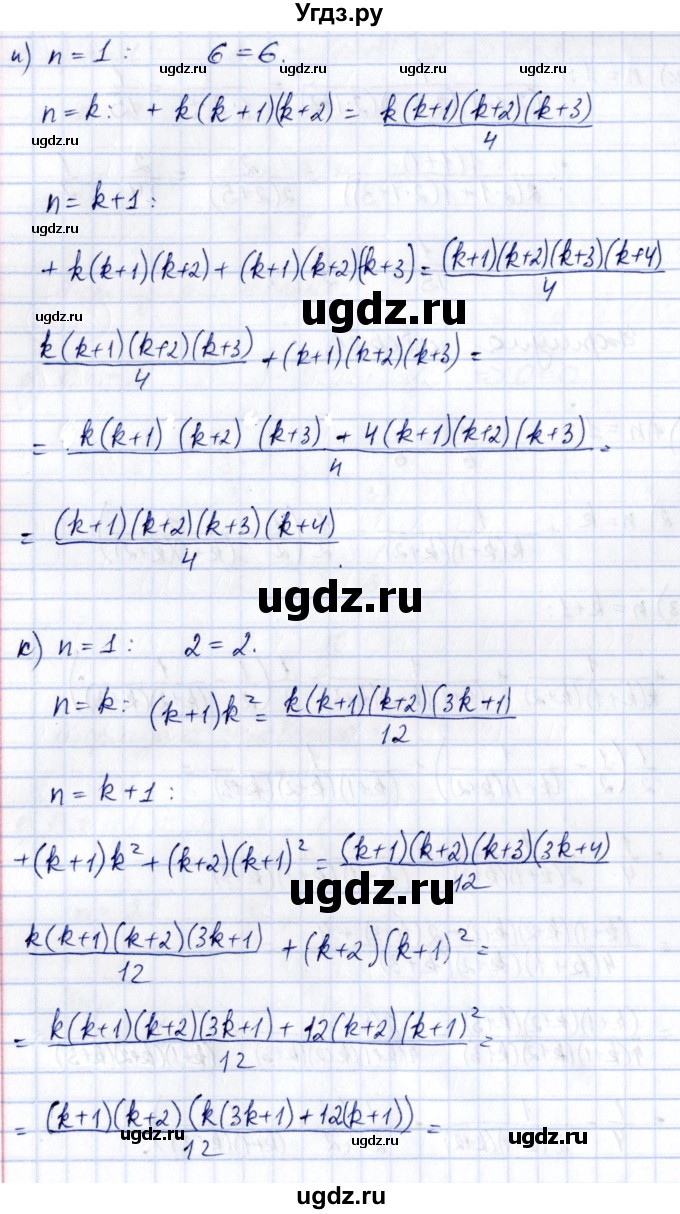 Угдз.ру
и) n = 1 : 6 = 6.
n = k: + k(k+1)(k+2) = k(k+1)(k+2)(k+3)/4
n = k+1 :
+ k(k+1)(k+2) + (k+1)(k+2)(k+3) = (k+1)(k+2)(k+3)(k+4)/4
k(k+1)(k+2)(k+3)/4 + (k+1)(k+2)(k+3) =
= k(k+1)(k+2)(k+3) + 4(k+1)(k+2)(k+3)/4 =
= (k+1)(k+2)(k+3)(k+4)/4.
к) n = 1 : 2 = 2.
n = k: (k+1)k² = k(k+1)(k+2)(3k+1)/12
n = k+1 :
+(k+1)k² + (k+2)(k+1)² = (k+1)(k+2)(k+3)(3k+4)/12
k(k+1)(k+2)(3k+1)/12 + (k+2)(k+1)² =
= k(k+1)(k+2)(3k+1) + 12(k+2)(k+1)²/12 =
= (k+1)(k+2)(k(3k+1) + 12(k+1))/12 =
ugdz.ru
ugdz.ru
ugdz.ru
ugdz.ru
ugdz.ru
ugdz.ru
ugdz.ru
ugdz.ru
ugdz.ru
ugdz.ru
ugdz.ru
ugdz.ru
ugdz.ru